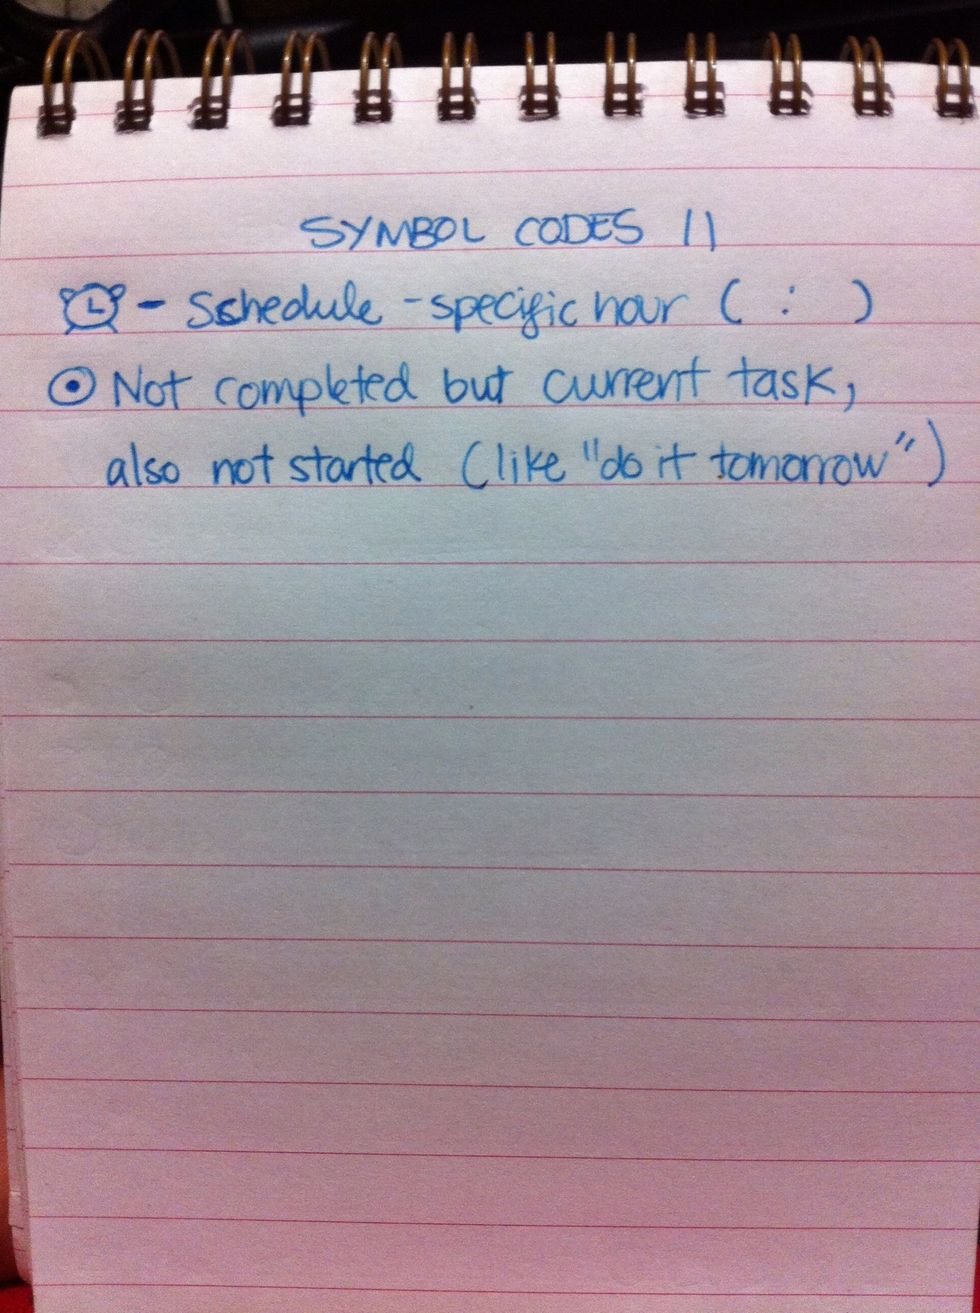 SYMBOL CODES II
⏰ - Schedule - specific hour ( : )
⊙ Not completed but current task,
also not started (like "do it tomorrow")